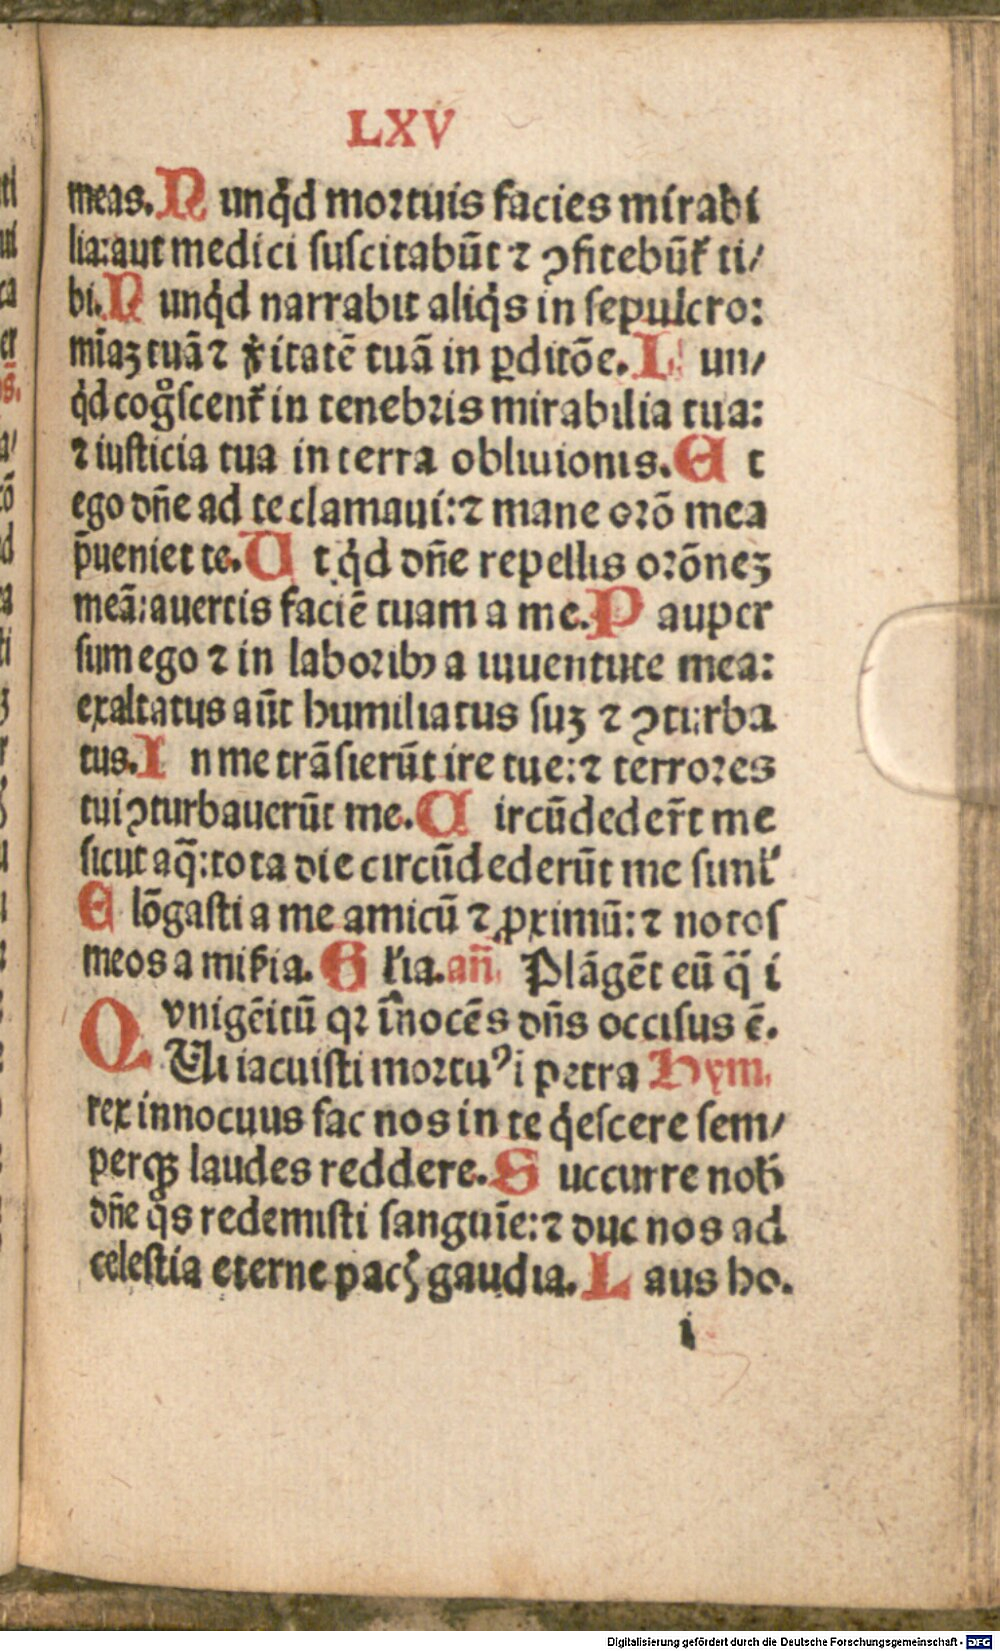 LXV
meas. N unq̈d mortuis facies mirabi
lia: aut medici suscitabūt ⁊ ꝯfitebūt᷑ ti/
bi. N unq̇d narrabit aliq̇s in sepulcro:
mīaꝫ tuā ⁊ v̾itatē tuā in ꝑditōe. N un/
q̇d cogͦscent᷑ in tenebris mirabilia tua:
⁊ iusticia tua in terra obliuionis. E t
ego dn̄e ad te clamaui: ⁊ mane orō mea
p̄ueniet te. U t q̇d dn̄e repellis orōneꝫ
meā: auertis faciē tuam a me. P auper
sum ego ⁊ in laboribꝰ a iuuentute mea:
exaltatus aūt humiliatus suꝫ ⁊ ꝯturba
tus. I n me trāsierūt ire tue: ⁊ terrores
tui ꝯturbauerūt me. C ircūdeder̄t me
sicut aq̄: tota die circūdederūt me siml᷑
E lōgasti a me amicū ⁊ ꝓximū: ⁊ notos
meos a miẜia. G lr̄ia. an̄. Plāgēt eū q̄̈ i
vnigēitū qꝛ īnocēs dn̄s occisus ē.
Q Ui iacuisti mortuꝰ i petra Hym.
rex innocuus fac nos in te q̇escere sem/
perqꝫ laudes reddere. S uccurre nob̾
dn̄e q̊s redemisti sanguīe: ⁊ duc nos ad
celestia eterne pacꝭ gaudia. L aus ho.
i
Digitalisierung gefördert durch die Deutsche Forschungsgemeinschaft - DFG